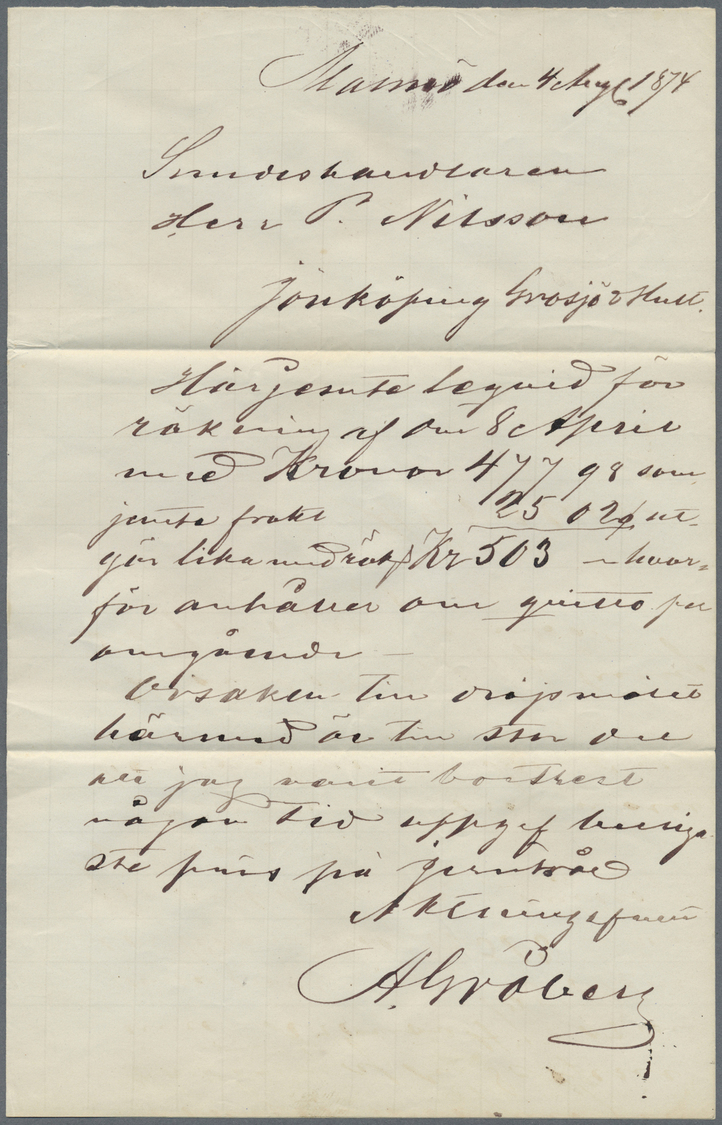 Malmö den 4 Aug 1874
Smideshandlaren
Herr P. Nilsson
Jönköping Grosjö & Hult.
Härjemte legvid för
räkning af den 8 April
med Kronor 477 98 som
jemte frakt 25 02 ut-
gör lika med Kr 503 – hvar-
för anhåller om qvitto per
omgående –
Orsaken till dröjsmålet
härmed är till stor del
att jag varit bortrest
någon tid uppgif billiga
ste pris på Jerntråd
Aktningsfullt
A. Gröberg